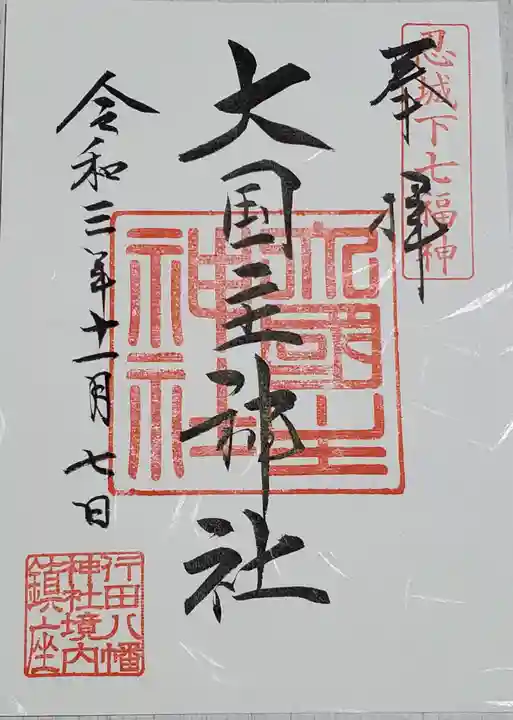 忍城下七福神
奉拝
大国主神社
大國主
神社
令和三年十一月七日
行田八幡
神社境内
鎮座